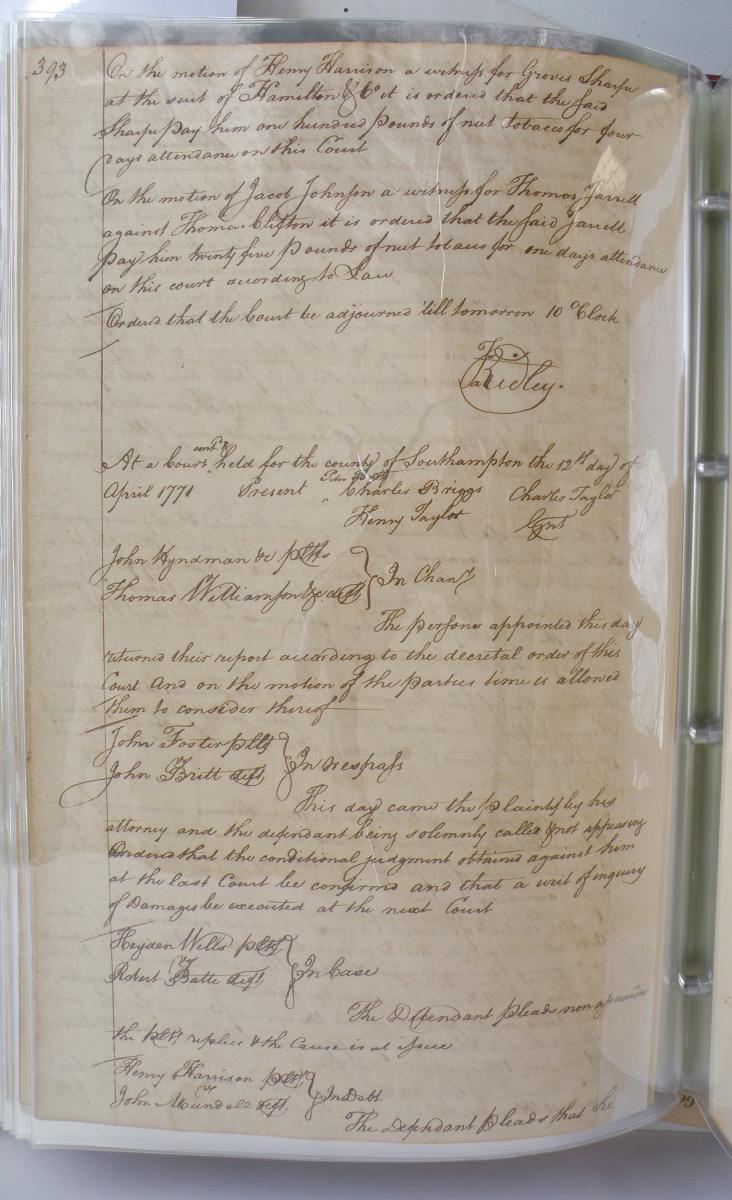 393
On the motion of Henry Harrison a witness for Groves Sharpe
at the suit of Hamilton & Co it is ordered that the said
Sharpe pay him one hundred pounds of net tobacco for four
days attendance on this Court
On the motion of Jacob Johnson a witness for Thomas Jarrell
against Thomas Clifton it is ordered that the said Jarrell
pay him twenty five pounds of net tobacco for one days attendance
on this court according to Law
Ordered that the Court be adjourned 'till tomorrow 10 oClock
Ridley.
contd &
At a Court held for the county of Southampton the 12th day of
April 1771 Present Charles Briggs Charles Taylor
Henry Taylor Gent
John Hyndman &c plts
Thomas Williamson &c deft } In Chany
The persons appointed this day
returned their report according to the decretal order of this
Court And on the motion of the parties time is allowed
them to consider thereof
John Foster plt
John Britt deft } In trespass
This day came the plaintif by his
attorney and the defendant being solemnly called & not appearing
Ordered that the conditional judgment obtained against him
at the last Court be confirmed and that a writ of inquiry
of Damages be executed at the next Court
Heyden Wells plt
Robert Batte deft } In Case
The Defendant pleads non
the plt replies & the Cause is at issue
Henry Harrison plt
John Mundell deft } In Debt
The Defendant pleads that he